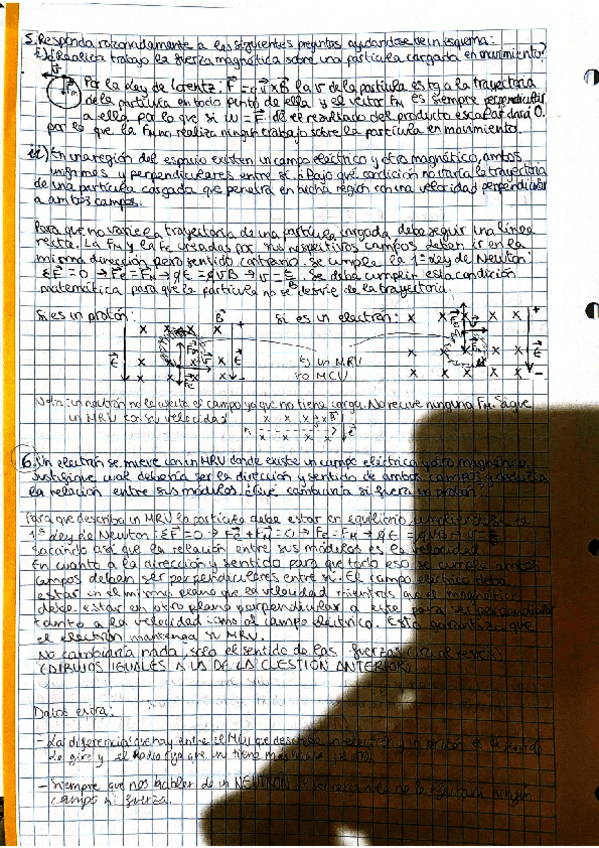 5. Responda razonadamente a las siguientes preguntas ayudándose de un esquema:
i) ¿Realiza trabajo la fuerza magnética sobre una partícula cargada en movimiento?
Por la Ley de Lorentz: F = q v x B la v de la partícula es tg a la trayectoria
de la partícula en todo punto de ella y el vector FM es siempre perpendicular
a ella por lo que si W = F · dr el resultado del producto escalar dará 0.
por lo que la FM no realiza ningún trabajo sobre la partícula en movimiento.
ii) En una región del espacio existen un campo eléctrico y otro magnético, ambos
uniformes y perpendiculares entre sí. ¿Bajo qué condición no varía la trayectoria
de una partícula cargada que penetra en dicha región con una velocidad perpendicular
a ambos campos.
Para que no varíe la trayectoria de una partícula cargada debe seguir una línea
recta. La FM y la Fe creadas por sus respectivos campos deben ir en la
misma dirección pero sentido contrario. Se cumple la 1ª Ley de Newton:
ΣF = 0 → Fe = FM → qE = qvB → v = E/B. Se debe cumplir esta condición
matemática para que la partícula no se desvíe de la trayectoria.
Si es un protón: B Si es un electrón:
es un MRU
no MCU
Nota: un neutrón no le afecta el campo ya que no tiene carga. No recibe ninguna FM. Sigue
un MRU con su velocidad
6. Un electrón se mueve con un MRU donde existe un campo eléctrico y otro magnético.
Justifique cual debería ser la dirección y sentido de ambos campos y deduzca
la relación entre sus módulos. ¿Qué cambiaría si fuera un protón?
Para que describa un MRU la partícula debe estar en equilibrio, cumpliéndose la
1ª Ley de Newton: ΣF = 0 → Fe + FM = 0 → Fe = FM → qE = qvB → v = E/B
Sacando así que la relación entre sus módulos es la velocidad
En cuanto a la dirección y sentido para que todo eso se cumpla ambos
campos deben ser perpendiculares entre sí. El campo eléctrico debe
estar en el mismo plano que la velocidad mientras que el magnético
debe estar en otro plano perpendicular a este para ser perpendicular
tanto a la velocidad como al campo eléctrico. Esto garantiza que
el electrón mantenga su MRU.
No cambiaría nada, solo el sentido de las fuerzas (irá al revés)
(DIBUJOS IGUALES A LA DE LA CUESTIÓN ANTERIOR)
Datos extra:
- La diferencia que hay entre el MCU que describe un electrón y un protón es el sentido
de giro y el radio ya que un tiene más masa
- Siempre que nos hablen de un NEUTRÓN ningún
campo ni fuerza.